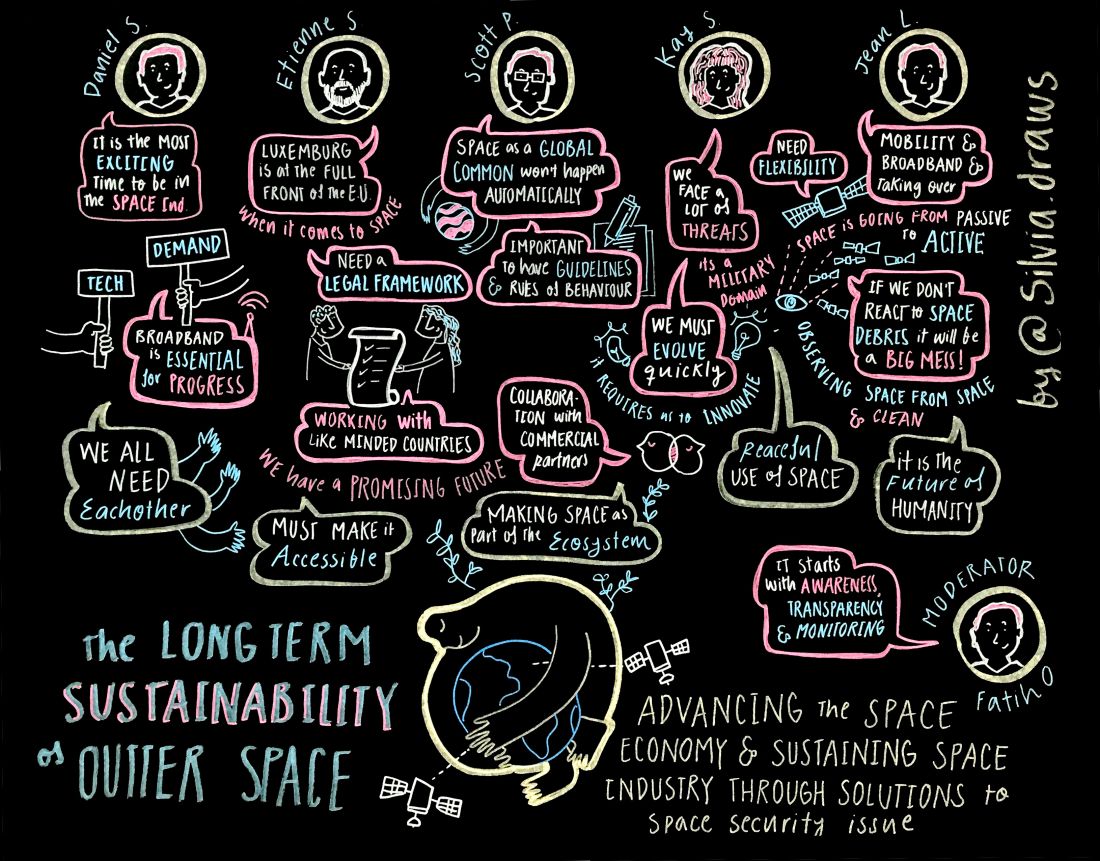 Daniel S.
It is the MOST
EXCITING
Time to be in
the SPACE Ind.
DEMAND
TECH
BROADBAND
is ESSENTIAL
for PROGRESS
WE ALL
NEED
Eachother
Etienne S
LUXEMBURG
is at the FULL
FRONT of the E.U.
when it comes to SPACE
NEED a
LEGAL FRAMEWORK
WORKING with
Like MINDED COUNTRIES
WE have a PROMISING FUTURE
MUST MAKE it
Accessible
Scott P.
SPACE as a GLOBAL
COMMON won't happen
AUTOMATICALLY
IMPORTANT
to have GUIDELINES
& RULES of BEHAVIOUR
COLLABORA-
TION with
COMMERCIAL
partners
MAKING SPACE as
part of the Ecosystem
Kay S.
WE
FACE a
LOT of
THREATS
its a
MILITARY
Domain
WE MUST
EVOLVE
quickly
it REQUIRES us to INNOVATE
Peaceful
USE of SPACE
Jean L.
NEED
FLEXIBILITY
MOBILITY &
BROADBAND &
Taking over
SPACE is GOING FROM PASSIVE
to ACTIVE
IF WE DON'T
REACT to SPACE
DEBRIS it will be
a BIG MESS!
OBSERVING SPACE FROM SPACE
& CLEAN
it is the
Future of
HUMANITY
IT STARTS
with AWARENESS,
TRANSPARENCY
& MONITORING
MODERATOR
Fatih O
by @Silvia.draws
the LONG TERM
SUSTAINABILITY
of OUTTER SPACE
ADVANCING the SPACE
ECONOMY & SUSTAINING SPACE
INDUSTRY THROUGH SOLUTIONS to
space security issue